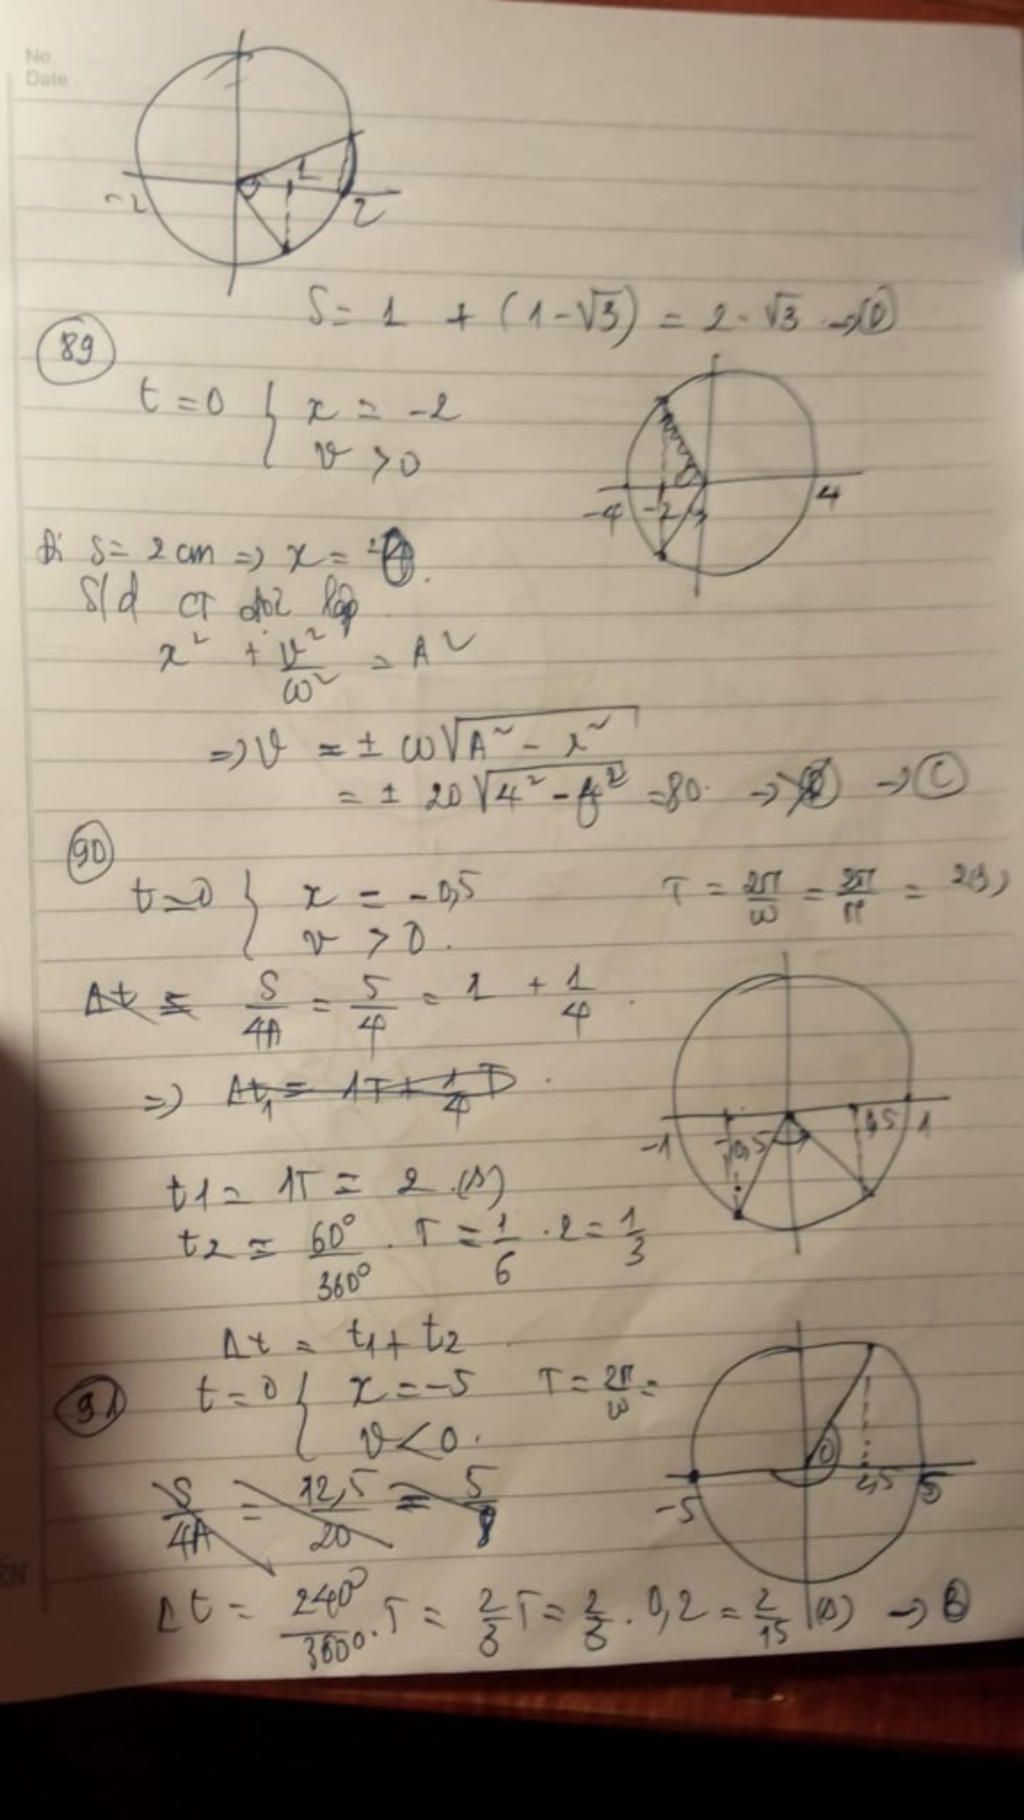 No.
Date
-2
1
2
S = 1 + (1 - √3) = 2 - √3 → D
89
t = 0 { x = -2
v > 0
-4
-2
4
Đi S = 2 cm => x =
S/d CT độc lập
x² + v²/ω² = A²
=> v = ± ω√(A² - x²)
= ± 20 √(4² - 0²) = 80 → → C
90
t = 0 { x = -0,5
v > 0.
T = 2π/ω = 2π/π = 2(s)
Δt = S/4A = 5/4 = 1 + 1/4
=> Δt₁ = 1T + 1/4 T
-1
-0,5
0,5
1
t1 = 1T = 2 (s)
t2 = 60°/360° . T = 1/6 . 2 = 1/3
Δt = t1 + t2
91
t = 0 { x = -5
v < 0.
T = 2π/ω =
S/4A = 12,5/20 = 5/8
-5
2,5
5
Δt = 240°/360° . T = 2/3 T = 2/3 . 0,2 = 2/15 (s) → B